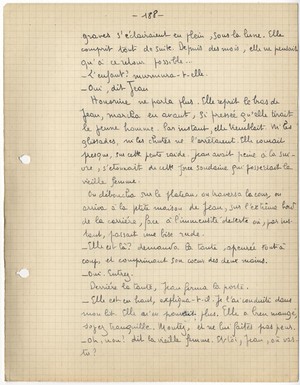 - 188 -
graves s'éclairaient en plein, sous la lune. Elle
comprit tout de suite. Depuis des mois, elle ne pensait
qu'à ce retour possible...
- L'enfant? murmura-t-elle.
- Oui, dit Jean
Honorine ne parla plus. Elle reprit le bras de
Jean, marcha en avant, si pressée qu'elle tirait
le jeune homme. Par instant, elle tremblait. Ni les
glissades, ni les chutes ne l'arrêtaient. Elle courait
presque, sur cette pente raide Jean avait peine à la sui-
vre, s'étonnait de cette force soudaine qui possédait la
vieille femme.
On déboucha sur le plateau, on traversa la cour, on
arriva à la petite maison de Jean, sur l'extrême bord
de la carrière, face à l'immensité déserte où, par ins-
tant, passait une bise rude.
- Elle est là? demanda la tante, apeurée tout à
coup, et comprimant son cœur des deux mains.
- Oui. Entrez.
Derrière la tante, Jean ferma la porte.
- Elle est en haut, expliqua-t-il. Je l'ai conduite dans
mon lit. Elle n'en pouvait plus. Elle a bien mangé,
soyez tranquille. Montez, et ne lui faites pas peur.
- Oh, non! dit la vieille femme. Et toi, Jean, où vas-
tu?